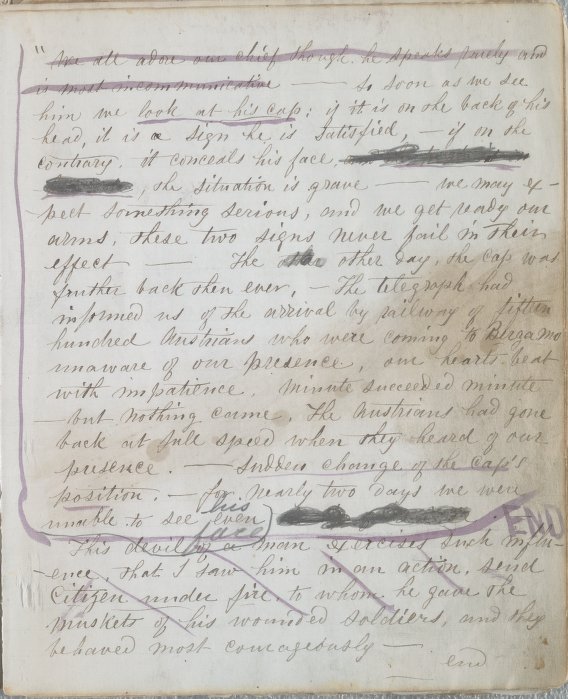 " We all adore our chief though he speaks rarely and
is most incommunicative — so soon as we see
him we look at his cap; if it is on the back of his
head, it is a sign he is satisfied, — if on the
contrary, it conceals his face,
, the situation is grave — we may ex-
pect something serious, and we get ready our
arms, these two signs never fail in their
effect — The other day, the cap was
further back then ever, — The telegraph had
informed us of the arrival by railway of fifteen
hundred Austrians who were coming to Bergamo
unaware of our presence, our hearts beat
with impatience. Minute succeeded minute
— but nothing came. The Austrians had gone
back at full speed when they heard of our
presence. — Sudden change of the cap's
position. — for nearly two days we were
unable to see even his face
END
This devil of a man exercises such influ-
ence, that I saw him in an action, send
Citizen under fire, to whom he gave the
muskets of his wounded soldiers, and they
behaved most courageously —
end